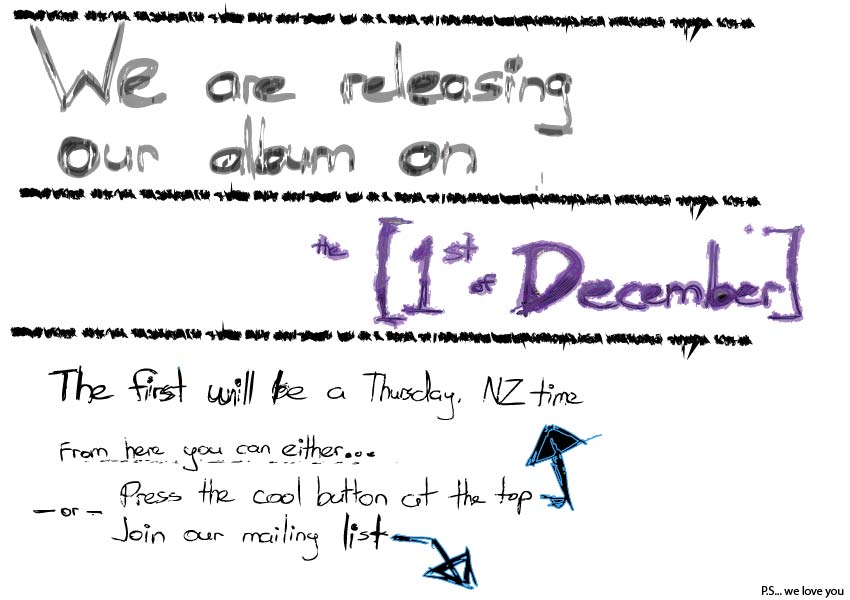 We are releasing
our album on
the [1st of December]
The first will be a Thursday, NZ time
From here you can either...
Press the cool button at the top
- or -
Join our mailing list
P.S... we love you